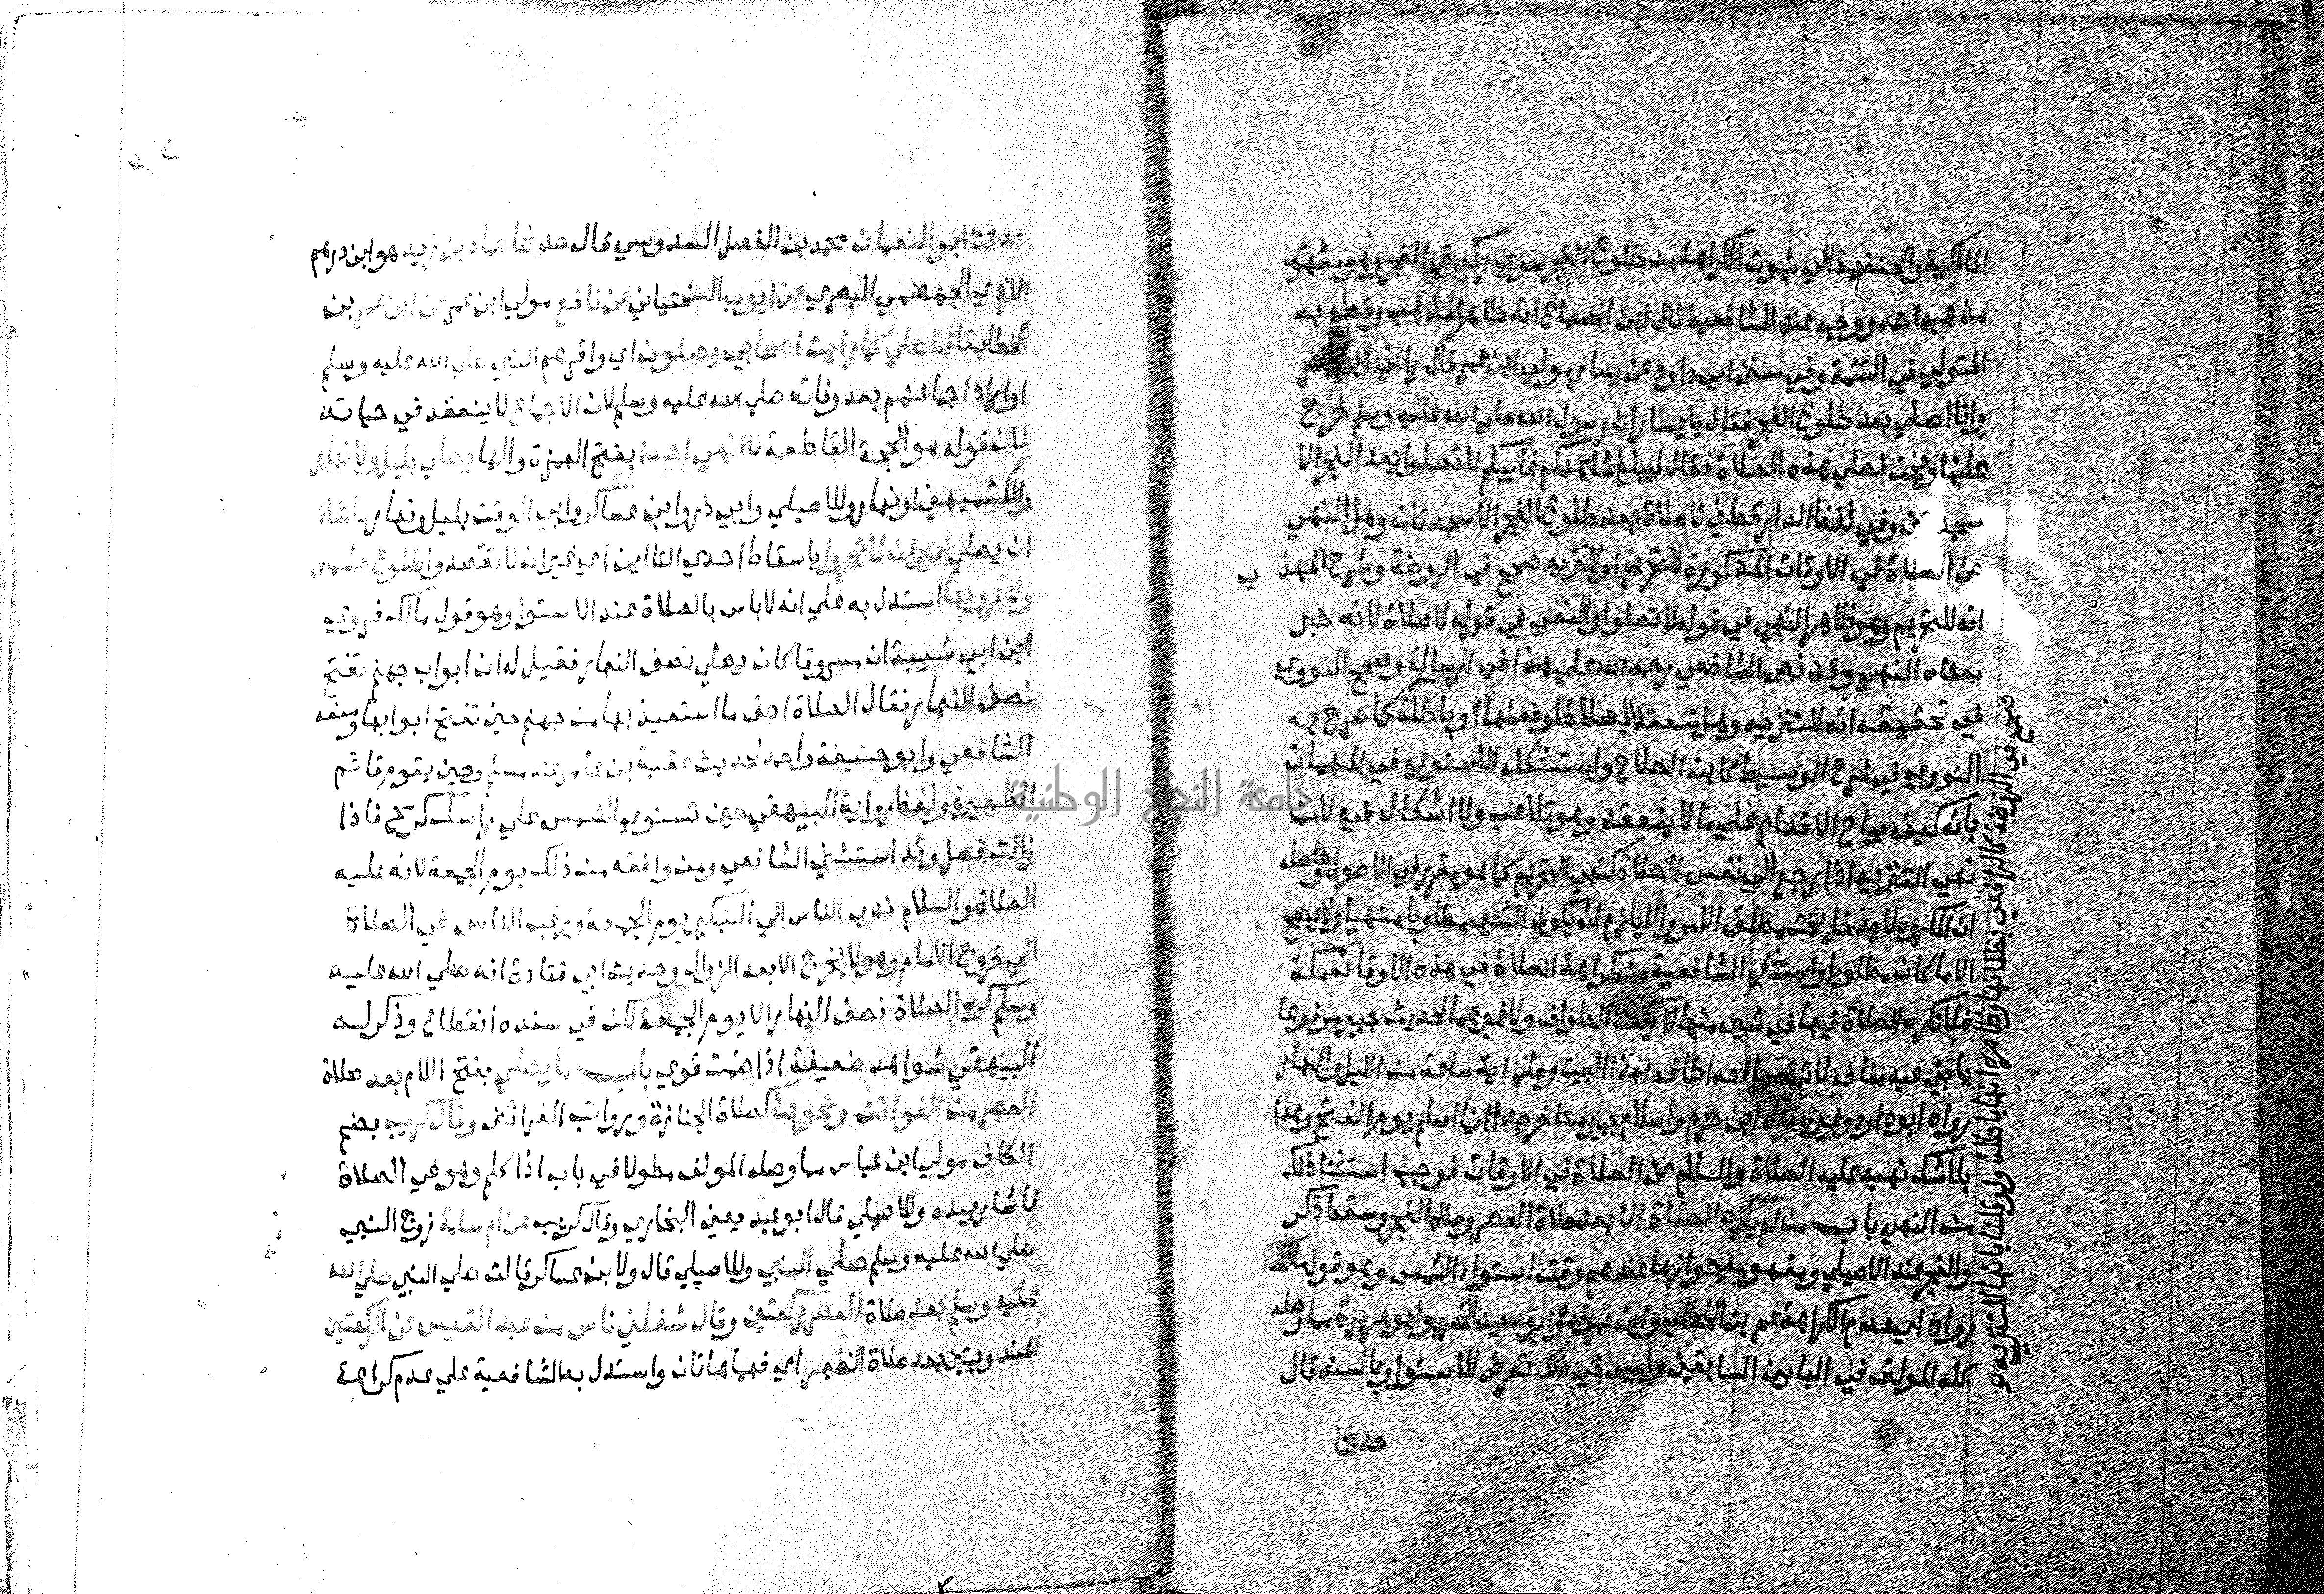 المالكية والحنفية الي ثبوت الكراهة من طلوع الفجر سوي ركعتي الفجر وهو مشهور
مذهب احمد ووجه عند الشافعية قال ابن الصباغ انه ظاهر المذهب وقطع به
المتولي في التتمة وفي سنن ابي داود عن يسار مولي ابن عمر قال راني ابن عمر
وانا اصلي بعد طلوع الفجر فقال يا يسار ان رسول الله صلي الله عليه وسلم خرج
علينا ونحن نصلي هذه الصلاة فقال ليبلغ شاهدكم غايبكم لا تصلوا بعد الفجر الا
سجدتين وفي لفظ الدارقطني لا صلاة بعد طلوع الفجر الا سجدتان وهل النهي
عن الصلاة في الاوقات المذكورة للتحريم او للتنزيه صحح في الروضة وشرح المهذ ب
انه للتحريم وهو ظاهر النهي في قوله لا تصلوا والنفي في قوله لا صلاة لانه خبر
معناه النهي وقد نص الشافعي رحمه الله علي هذا في الرسالة وصحح النووي
في تحقيقه انه للتنزيه وهل تنعقد الصلاة لو فعلها او باطلة كما صرح به
النووي في شرح الوسيط كابن الصلاح واستشكل الاسنوي في المهمات
بانه كيف يباح الاقدام علي ما لا ينعقد وهو تلاعب ولا اشكال فيه لان
نهي التنزيه اذا رجع الي نفس الصلاة كنهي التحريم كما هو مقرر في الاصول وحاصله
ان المكروه لا يدخل تحت مطلق الامر والا يلزم ان يكون الشي مطلوبا منهيا ولا يصح
الا ما كان مطلوبا واستثني الشافعية من كراهة الصلاة في هذه الاوقات مكة
فلا تكره الصلاة فيها في شي منها لا ركعتا الطواف ولا غيرهما لحديث جبير مرفوعا
يا بني عبد مناف لا تمنعوا احدا طاف بهذا البيت وصلي اية ساعة من الليل والنهار
رواه ابو داود وغيره قال ابن حزم واسلام جبير متاخر جدا انما اسلم يوم الفتح وهذا
بلا شك نهيه عليه الصلاة والسلام عن الصلاة في الاوقات فوجب استثنا ذلك
من النهي باب من لم يكره الصلاة الا بعد صلاة العصر وصلاة الفجر وسقط ذكر
والفجر عند الاصيلي ومفهومه جوازها عندهم وقت استواء الشمس وهو قول مالك
رواه اي عدم الكراهة عمر بن الخطاب وابن عمر وابو سعيد الخدري وابو هريرة مما وصله
كله المولف في البابين السابقين وليس في ذلك تعرض للاستوا وبالسند قال
حدثنا
حدثنا ابو النعمان محمد بن الفضل السدوسي قال حدثنا حماد بن زيد هو ابن درهم
الازدي الجهضمي البصري عن ايوب السختياني عن نافع مولي ابن عمر عن ابن عمر بن
الخطاب قال اصلي كما رايت اصحابي يصلون اي واقرهم النبي صلي الله عليه وسلم
او اراد اجماعهم بعد وفاته صلي الله عليه وسلم لان الاجماع لا ينعقد في حياته
لان قوله هو الحجة القاطعة لا انهي احدا بفتح الهمزة والها يصلي بليل ولا نهار
وللكشميهني او نهار وللاصيلي وابي ذر وابن عساكر وابي الوقت بليل ونهار ما شاء
ان يصلي غير ان لا تحروا باسقاط احدي التاين اي غير ان لا تقصدوا طلوع شمس
ولا غروبها استدل به علي انه لا باس بالصلاة عند الاستوا وهو قول مالك فروي
ابن ابي شيبة ان مسروقا كان يصلي نصف النهار فقيل له ان ابواب جهنم تفتح
نصف النهار فقال الصلاة احق ما استعيذ بها من جهنم حين تفتح ابوابها ومنعه
الشافعي وابو حنيفة واحمد لحديث عقبة بن عامر عند مسلم وحين يقوم قائم
الظهيرة ولفظ رواية البيهقي حين تستوي الشمس علي راسك كرمح فاذا
زالت فصل وقد استثني الشافعي ومن وافقه من ذلك يوم الجمعة لانه عليه
الصلاة والسلام ندب الناس الي التبكير يوم الجمعة ورغب الناس في الصلاة
الي خروج الامام وهو لا يخرج الا بعد الزوال وحديث ابي قتادة انه صلي الله عليه
وسلم كره الصلاة نصف النهار الا يوم الجمعة لكن في سنده انقطاع وذكر له
البيهقي شواهد ضعيفة اذا ضمت قوي باب ما يصلي بفتح اللام بعد صلاة
العصر من الفوائت ونحوها كصلاة الجنازة ورواتب الفرائض وقال كريب بضم
الكاف مولي ابن عباس مما وصله المولف مطولا في باب اذا كلم وهو في الصلاة
فاشار بيده وللاصيلي قال ابو عبد يعني البخاري وقال كريب عن ام سلمة زوج النبي
صلي الله عليه وسلم صلي النبي وللاصيلي قال ولابن عساكر قالت صلي النبي صلي الله
عليه وسلم بعد صلاة العصر ركعتين وقال شغلني ناس من عبد القيس عن الركعتين
المندوبتين بعد صلاة الظهر اي فهما هاتان واستدل به الشافعية علي عدم كراهة
جامعة النجاح الوطنية